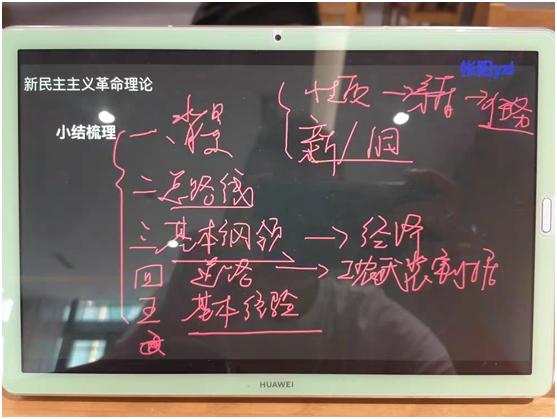 张阳yzl
新民主主义革命理论
性质
新/旧
小结梳理
一
二 总路线
三 基本纲领 → 经
四 道路 → 工农武装割据
五 基本经验
HUAWEI